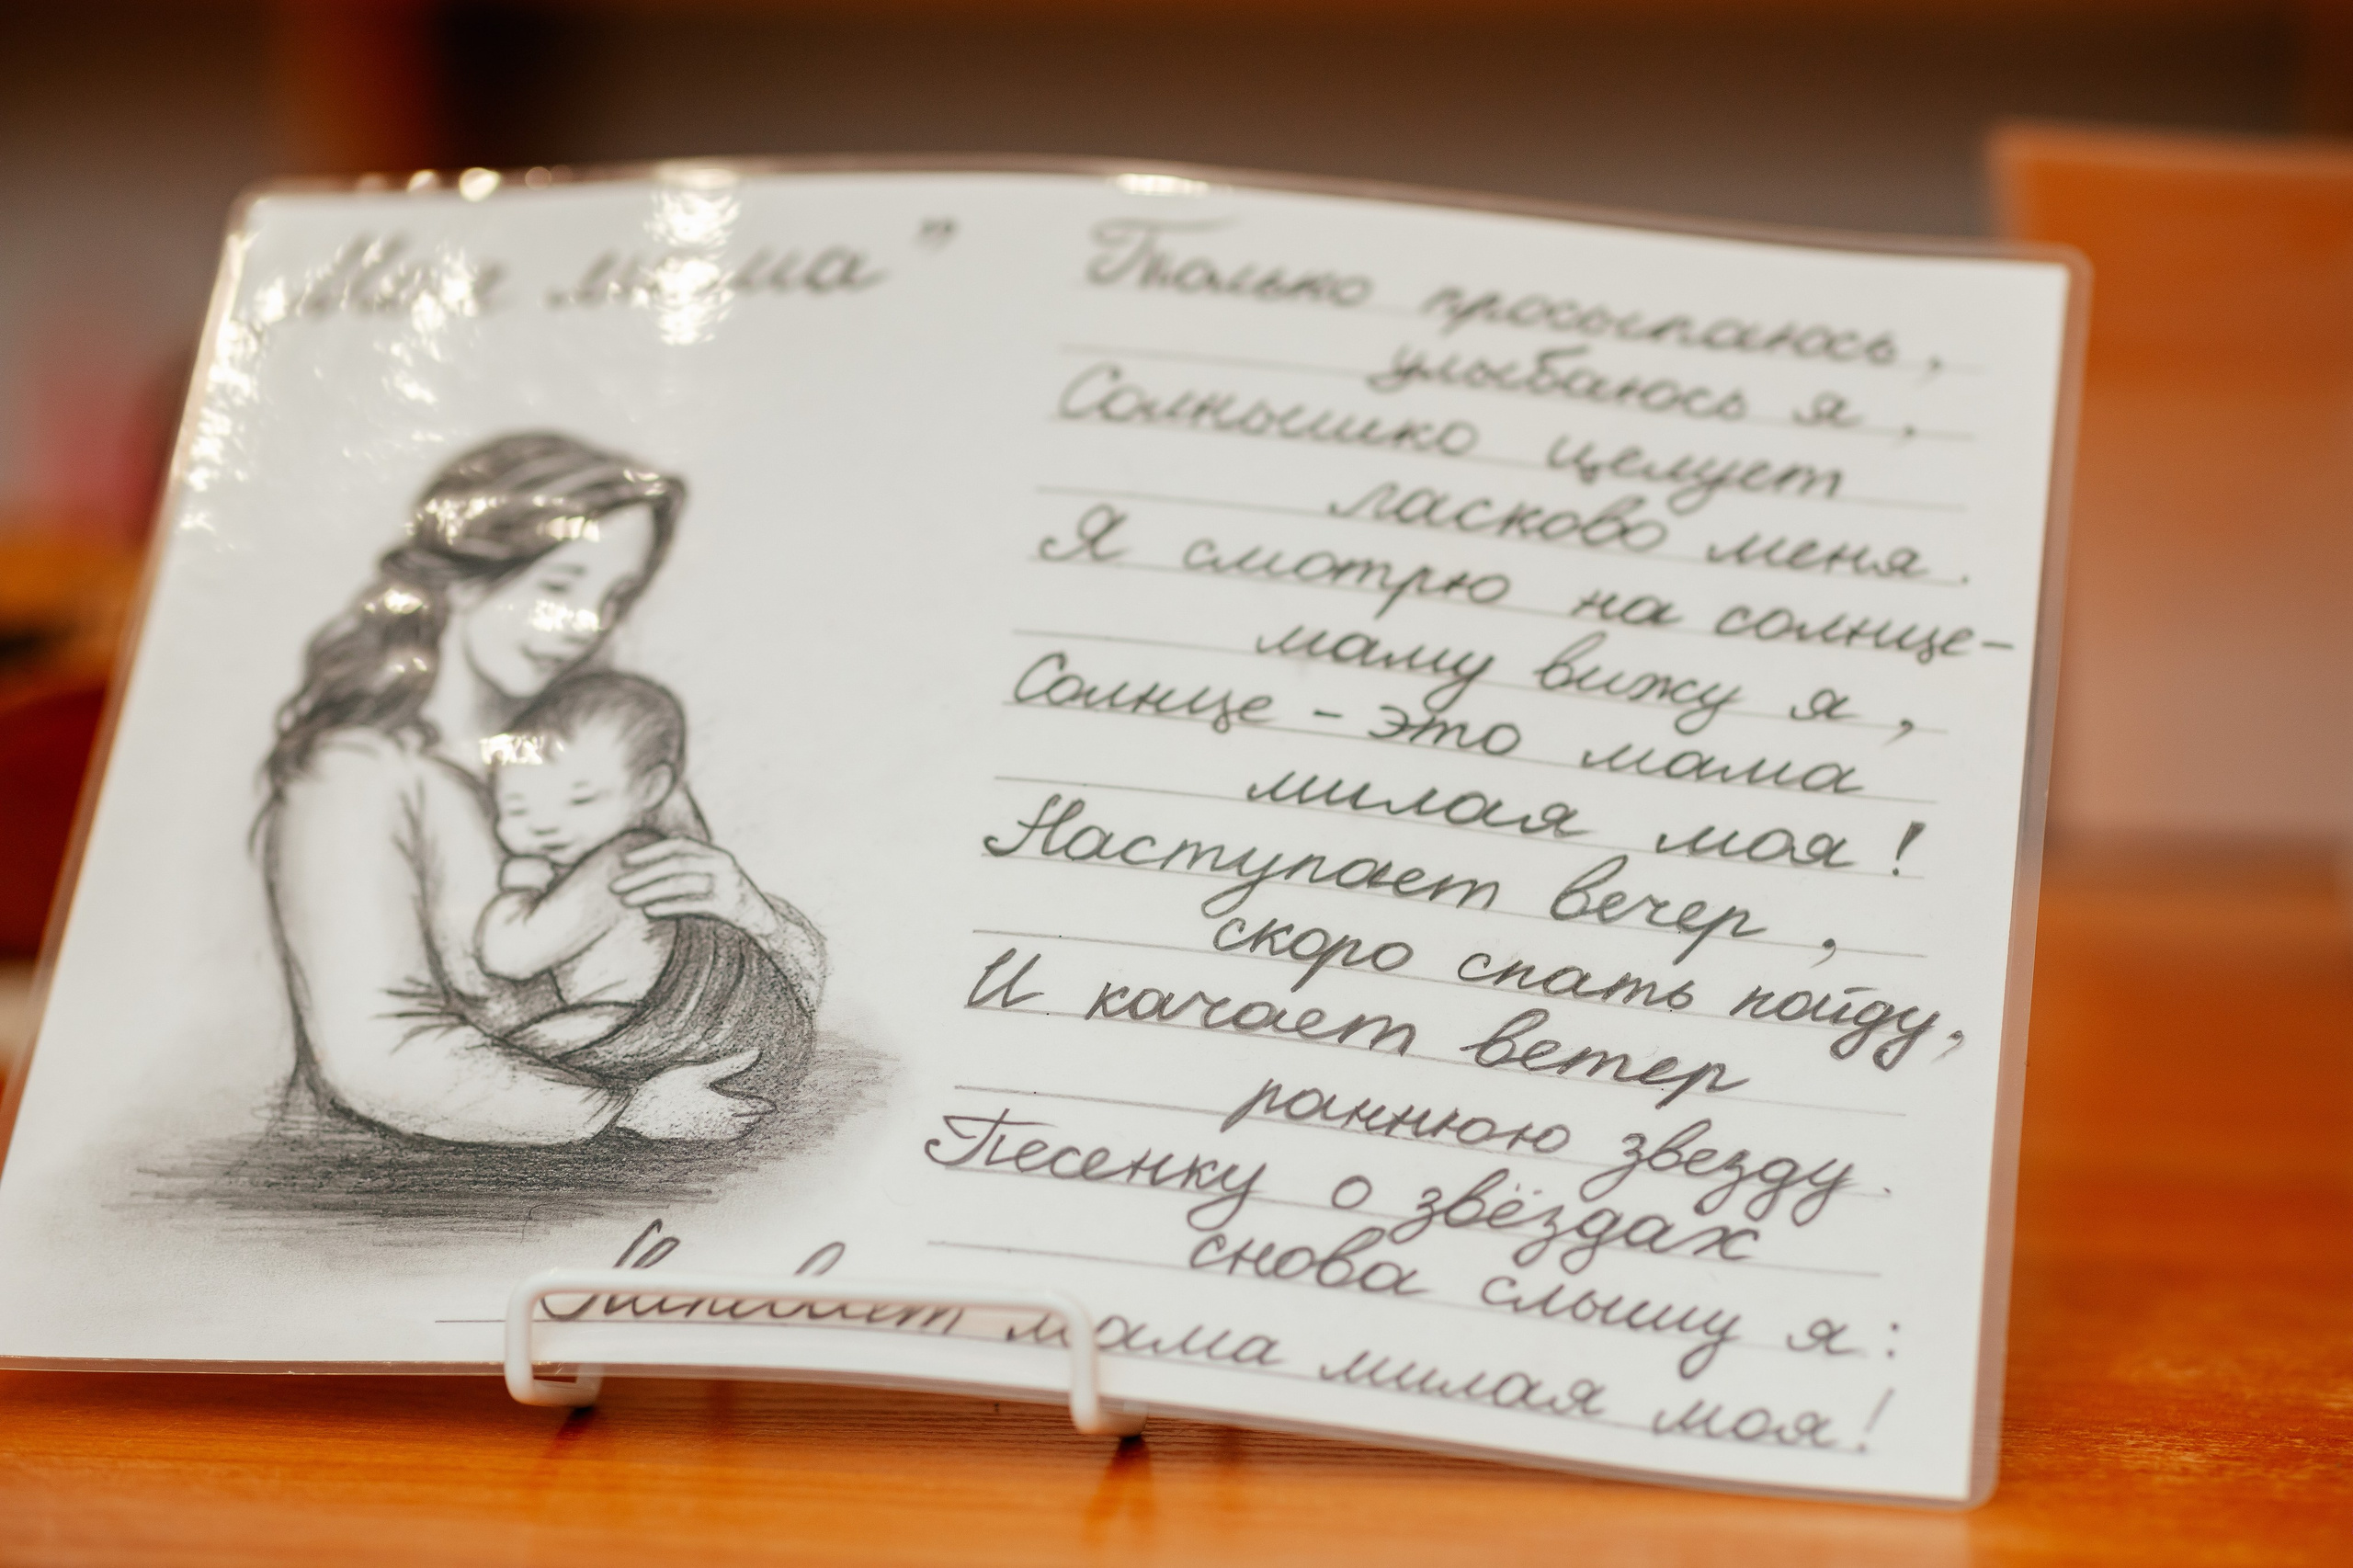 Моя мама"
Только просыпаюсь,
улыбаюсь я,
Солнышко целует
ласково меня.
Я смотрю на солнце-
маму вижу я,
Солнце - это мама
милая моя!
Наступает вечер,
скоро спать пойду,
И качает ветер
раннюю звезду.
Песенку о звёздах
снова слышу я:
мама милая моя!